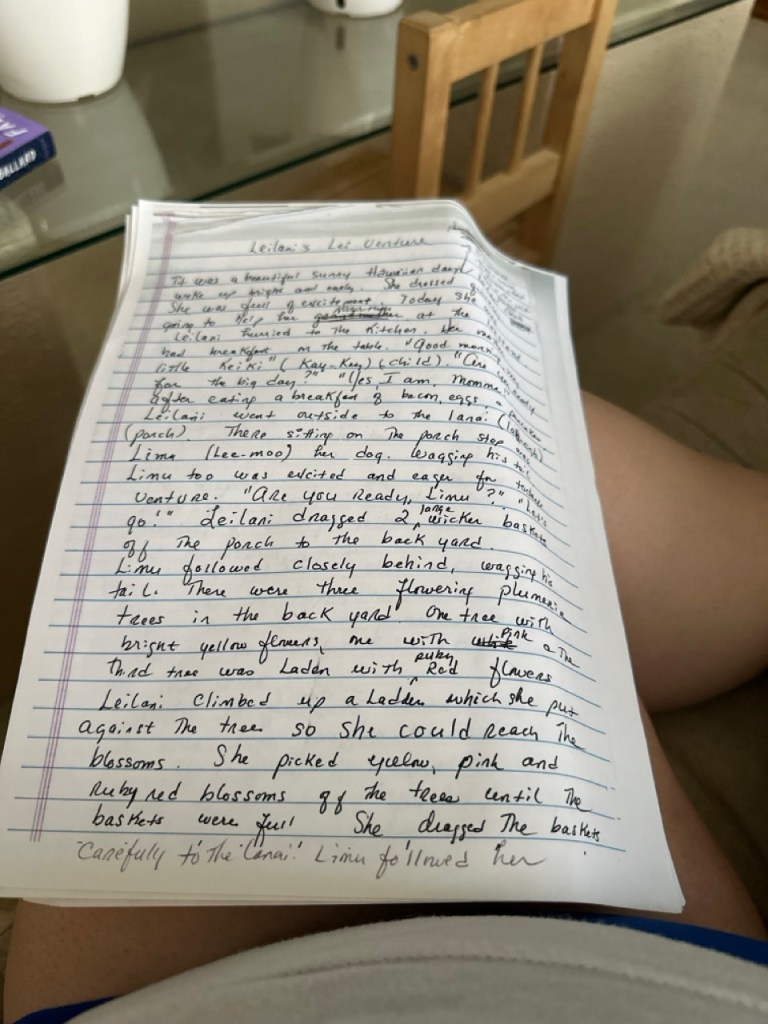 Leilani's Lei Venture
It was a beautiful sunny Hawaiian day
woke up bright and early. She dressed
She was full of excitement. Today she
going to help her at the
Leilani hurried to the Kitchen. Her
had breakfast on the table. "Good
little Keiki" (Kay-Kay) (child). "Are
for the big day?" "Yes I am, Momma
after eating a breakfast of bacon, eggs
Leilani went outside to the lanai
(porch). There sitting on The porch step was
Limu (Lee-moo) her dog. Wagging his
Limu too was excited and eager for
venture. "Are you Ready, Limu?" "Let's
go!" Leilani dragged 2 large wicker baskets
off The porch to the back yard.
Limu followed closely behind, wagging his
tail. There were three flowering plumeria
trees in the back yard. One tree with
bright yellow flowers, one with Pink The
third tree was Laden with ruby Red flowers
Leilani climbed up a Ladder which she put
against The trees so she could reach The
blossoms. She picked yellow, pink and
Ruby red blossoms off the trees until The
baskets were full She dragged The baskets
carefully to the "lanai." Limu followed her
FA
BALLARD